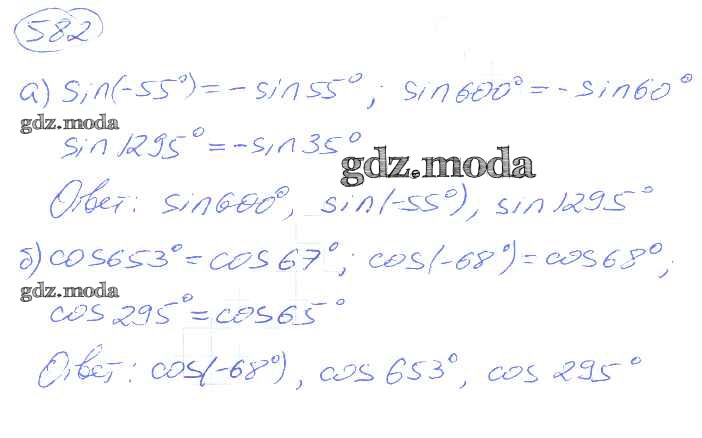 582
а) sin(-55°) = - sin 55°; sin 600° = - sin 60°
gdz.moda
sin 1295° = - sin 35°
gdz.moda
Ответ: sin 600°, sin(-55°), sin 1295°
б) cos 653° = cos 67°; cos(-68°) = cos 68°;
gdz.moda
cos 295° = cos 65°
Ответ: cos(-68°), cos 653°, cos 295°